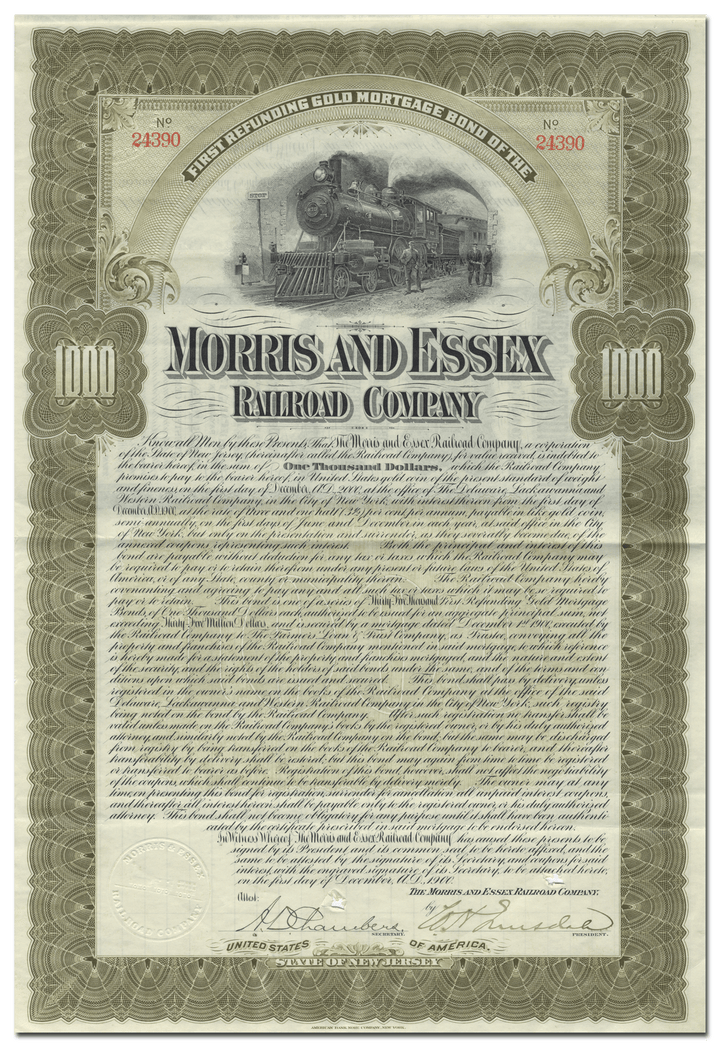 FIRST REFUNDING GOLD MORTGAGE BOND OF THE
Nº
24390
Nº
24390
1000
1000
MORRIS AND ESSEX
RAILROAD COMPANY
Know all Men by these Presents, That The Morris and Essex Railroad Company, a corporation
of the State of New Jersey (hereinafter called the Railroad Company), for value received, is indebted to
the bearer hereof, in the sum of One Thousand Dollars, which the Railroad Company
promises to pay to the bearer hereof, in United States gold coin of the present standard of weight
and fineness, on the first day of December, A.D. 2000, at the office of The Delaware, Lackawanna and
Western Railroad Company, in the City of New York, with interest thereon from the first day of
December, A.D. 1900, at the rate of three and one half (3½) per cent per annum, payable in like gold coin,
semi annually, on the first days of June and December in each year, at said office in the City
of New York, but only on the presentation and surrender, as they severally become due, of the
annexed coupons representing such interest. Both the principal and interest of this
bond are payable without deduction for any tax or taxes which the Railroad Company may
be required to pay or to retain therefrom under any present or future laws of the United States of
America, or of any State, county or municipality therein. The Railroad Company hereby
covenanting and agreeing to pay any and all such tax or taxes which it may be so required to
pay or to retain. This bond is one of a series of Thirty Five Thousand First Refunding Gold Mortgage
Bonds, of One Thousand Dollars each, authorized to be issued for an aggregate principal sum, not
exceeding Thirty Five Million Dollars, and is secured by a mortgage dated December 1st 1900, executed by
the Railroad Company to The Farmers' Loan & Trust Company, as Trustee, conveying all the
property and franchises of the Railroad Company mentioned in said mortgage, to which reference
is hereby made for a statement of the property and franchises mortgaged, and the nature and extent
of the security, and the rights of the holders of said bonds under the same, and of the terms and con
ditions upon which said bonds are issued and secured. This bond shall pass by delivery, unless
registered in the owner's name on the books of the Railroad Company at the office of the said
Delaware, Lackawanna and Western Railroad Company in the City of New York, such registry
being noted on the bond by the Railroad Company. After such registration no transfer shall be
valid unless made on the Railroad Company's books by the registered owner, or by his duly authorized
attorney, and similarly noted by the Railroad Company on the bond, but the same may be discharged
from registry by being transferred on the books of the Railroad Company to bearer, and thereafter
transferability by delivery shall be restored; but this bond may again from time to time be registered
or transferred to bearer as before. Registration of this bond, however, shall not affect the negotiability
of the coupons, which shall continue to be transferable by delivery merely. The owner may at any
time, on presenting this bond for registration, surrender for cancellation all unpaid interest coupons,
and thereafter all interest hereon shall be payable only to the registered owner, or his duly authorized
attorney. This bond shall not become obligatory for any purpose until it shall have been authenti
cated by the certificate prescribed in said mortgage to be endorsed hereon.
In Witness Whereof The Morris and Essex Railroad Company has caused these presents to be
signed by its President and its common seal to be hereto affixed, and the
same to be attested by the signature of its Secretary, and coupons for said
interest, with the engraved signature of its Secretary, to be attached hereto,
on the first day of December, A.D. 1900.
THE MORRIS AND ESSEX RAILROAD COMPANY,
Attest:
by
A D Chambers
SECRETARY.
PRESIDENT.
MORRIS & ESSEX
RAILROAD COMPANY
UNITED STATES OF AMERICA.
STATE OF NEW JERSEY
AMERICAN BANK NOTE COMPANY, NEW YORK.